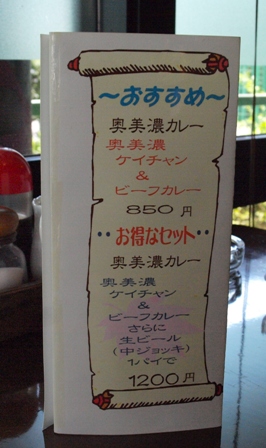 ～おすすめ～
奥美濃カレー
奥美濃
ケイチャン
&
ビーフカレー
850円
··お得なセット··
奥美濃カレー
奥美濃
ケイチャン
&
ビーフカレー
さらに
生ビール
(中ジョッキ)
1パイで
1200円